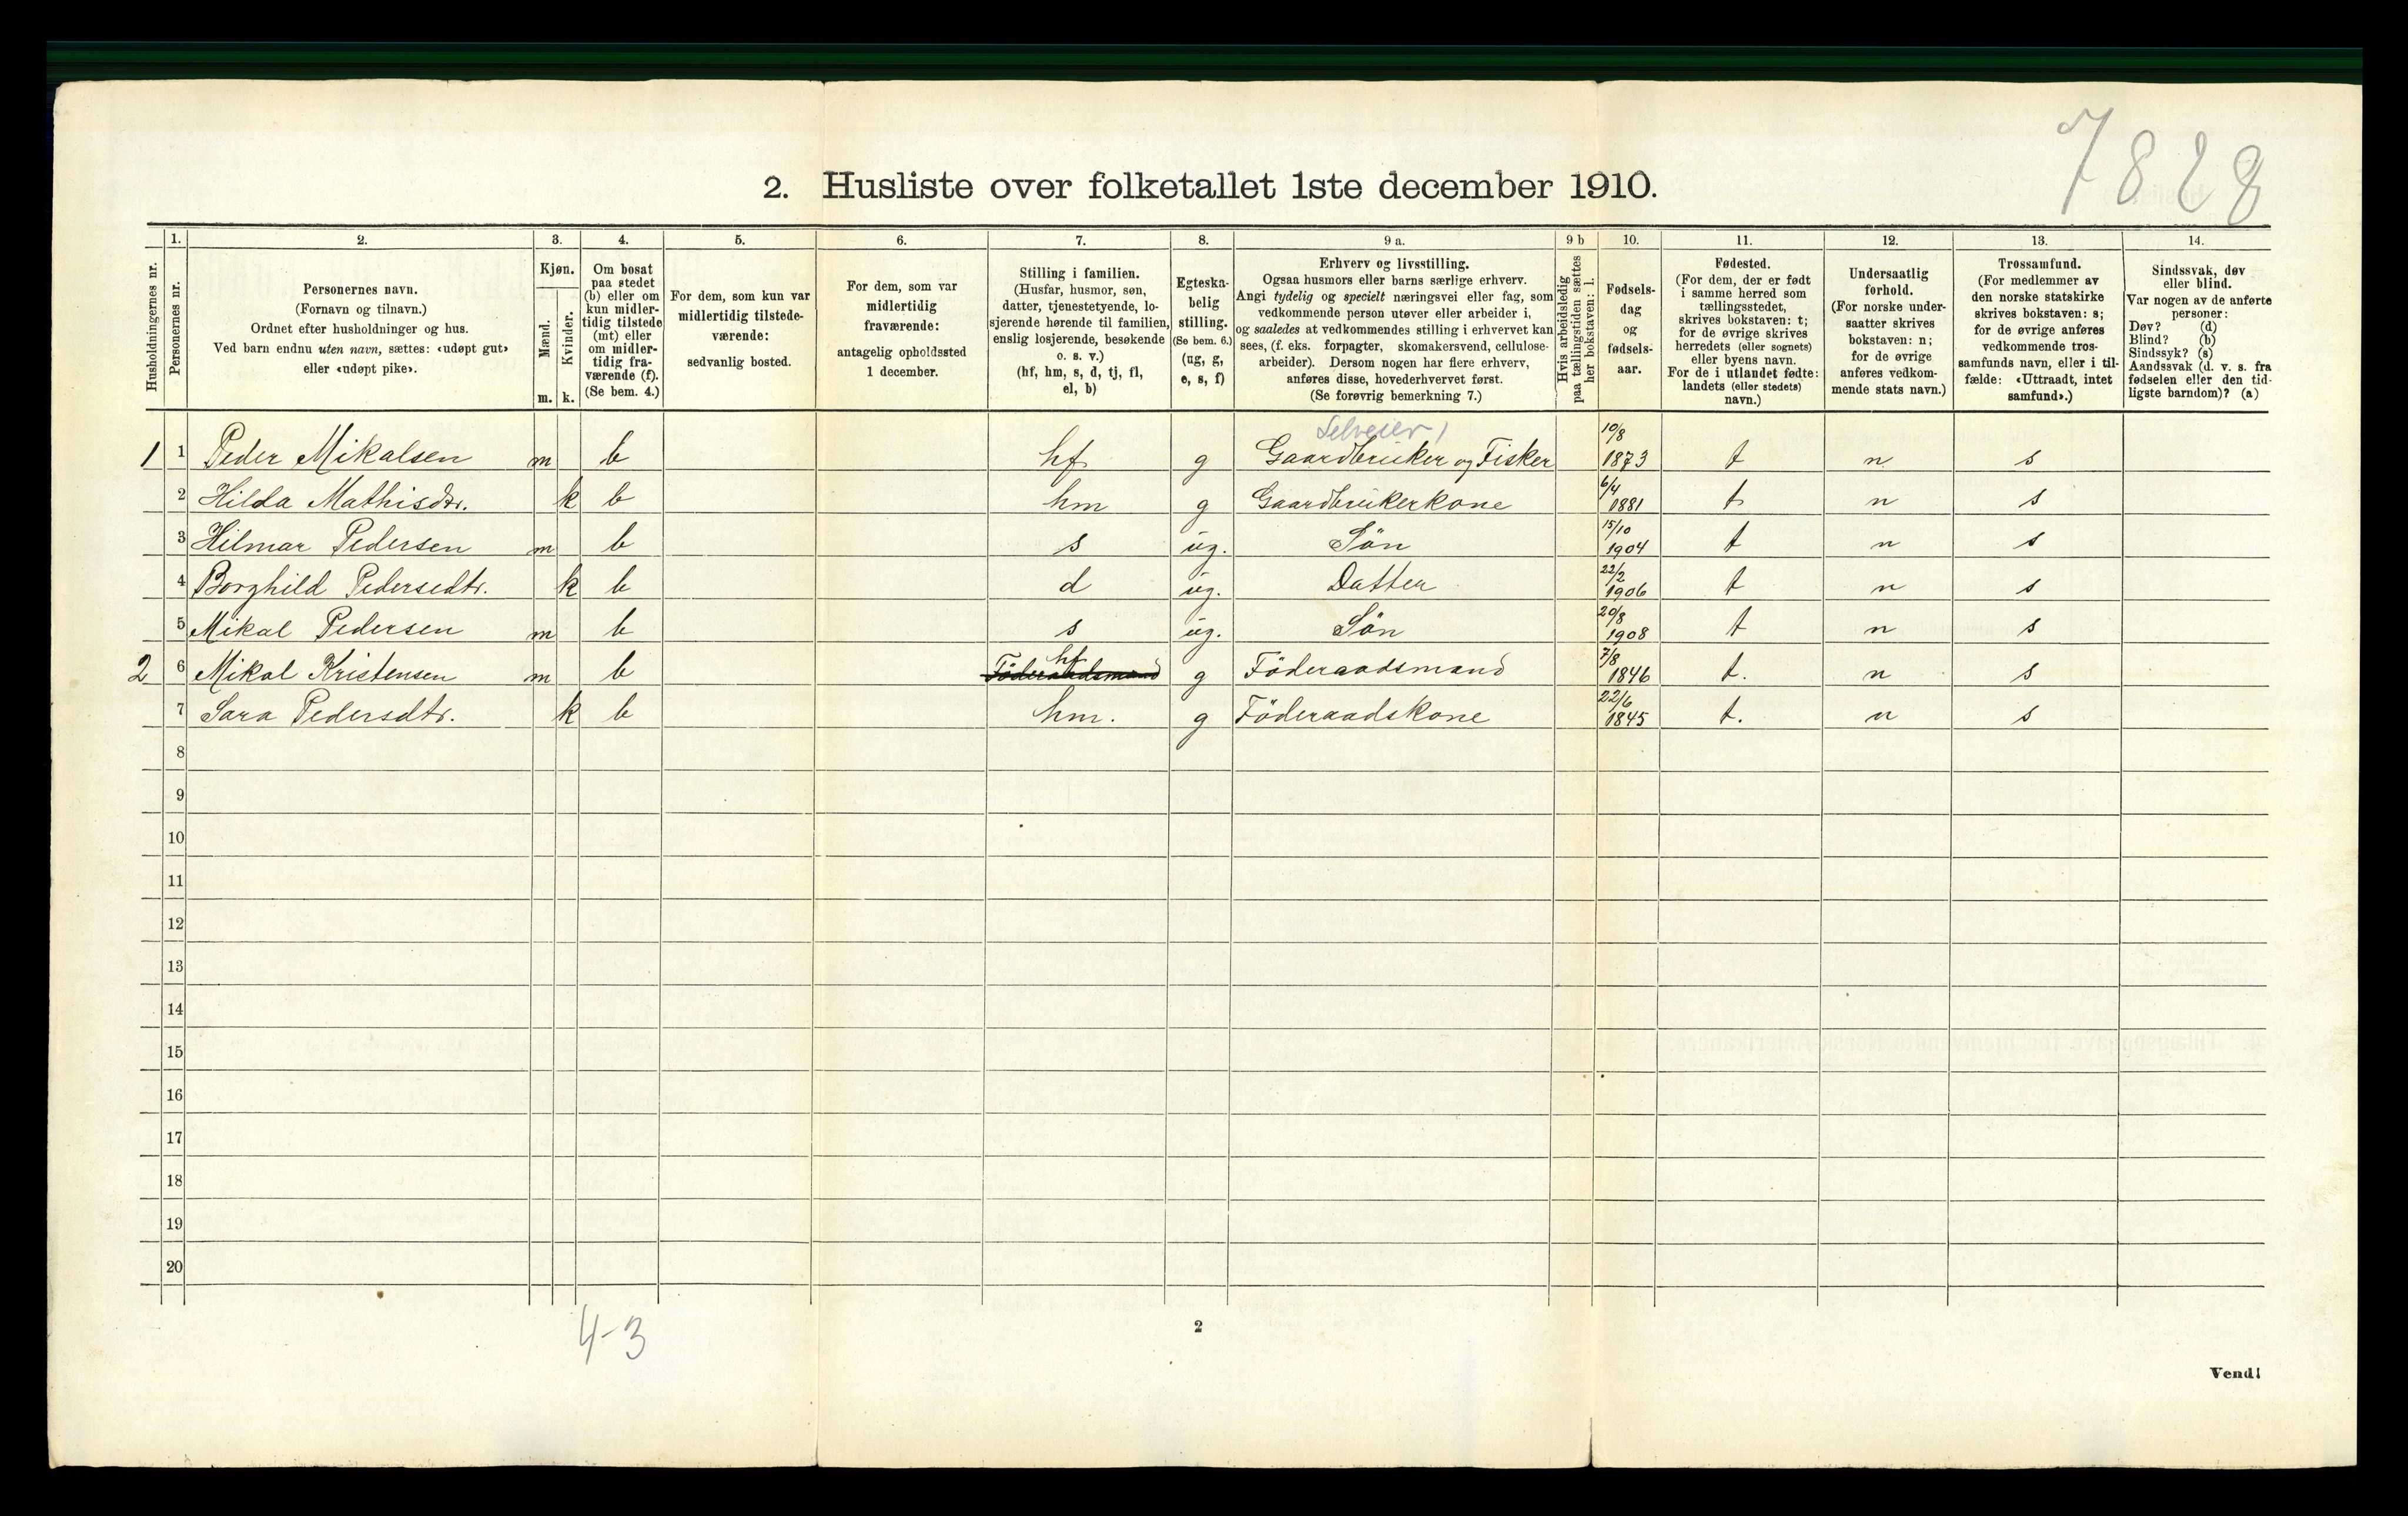 7828
2. Husliste over folketallet 1ste december 1910.
Husholdningernes nr.
1.
Personernes nr.
2.
Personernes navn.
(Fornavn og tilnavn.)
Ordnet efter husholdninger og hus.
Ved barn endnu uten navn, sættes: «udøpt gut»
eller «udøpt pike».
3.
Kjøn.
Mænd.
Kvinder.
m. k.
4.
Om bosat
paa stedet
(b) eller om
kun midler-
tidig tilstede
(mt) eller
om midler-
tidig fra-
værende (f).
(Se bem. 4.)
5.
For dem, som kun var
midlertidig tilstede-
værende:
sedvanlig bosted.
6.
For dem, som var
midlertidig
fraværende:
antagelig opholdssted
1 december.
7.
Stilling i familien.
(Husfar, husmor, søn,
datter, tjenestetyende, lo-
sjerende hørende til familien,
enslig losjerende, besøkende
o. s. v.)
(hf, hm, s, d, tj, fl,
el, b)
8.
Egteska-
belig
stilling.
(Se bem. 6.)
(ug, g,
e, s, f)
9 a.
Erhverv og livsstilling.
Ogsaa husmors eller barns særlige erhverv.
Angi tydelig og specielt næringsvei eller fag, som
vedkommende person utøver eller arbeider i,
og saaledes at vedkommendes stilling i erhvervet kan
sees, (f. eks. forpagter, skomakersvend, cellulose-
arbeider). Dersom nogen har flere erhverv,
anføres disse, hovederhvervet først.
(Se forøvrig bemerkning 7.)
9 b
Hvis arbeidsledig
paa tællingstiden sættes
her bokstaven: l.
10.
Fødsels-
dag
og
fødsels-
aar.
11.
Fødested.
(For dem, der er født
i samme herred som
tællingsstedet,
skrives bokstaven: t;
for de øvrige skrives
herredets (eller sognets)
eller byens navn.
For de i utlandet fødte:
landets (eller stedets)
navn.)
12.
Undersaatlig
forhold.
(For norske under-
saatter skrives
bokstaven: n;
for de øvrige
anføres vedkom-
mende stats navn.)
13.
Trossamfund.
(For medlemmer av
den norske statskirke
skrives bokstaven: s;
for de øvrige anføres
vedkommende tros-
samfunds navn, eller i til-
fælde: «Uttraadt, intet
samfund».)
14.
Sindssvak, døv
eller blind.
Var nogen av de anførte
personer:
Døv? (d)
Blind? (b)
Sindssyk? (s)
Aandssvak (d. v. s. fra
fødselen eller den tid-
ligste barndom)? (a)
Selveier 10/8
1 1 Peder Mikalsen m b hf g Gaardbruker og Fisker 1873 t n s
2 Hilda Mathisdtr. k b hm g Gaardbrukerkone 6/4 1881 t n s
3 Hilmar Pedersen m b s ug. Sön 15/10 1904 t n s
4 Borghild Pedersedtr. k b d ug. Datter 22/2 1906 t n s
5 Mikal Pedersen m b s ug. Sön 20/8 1908 t n s
2 6 Mikal Kristensen m b Föderaadsmand hf g Föderaadsmand 7/8 1846 t. n s
7 Sara Pedersdtr. k b hm. g Föderaadskone 22/6 1845 t. n s
8
9
10
11
12
13
14
15
16
17
18
19
20
4-3
2
Vend!